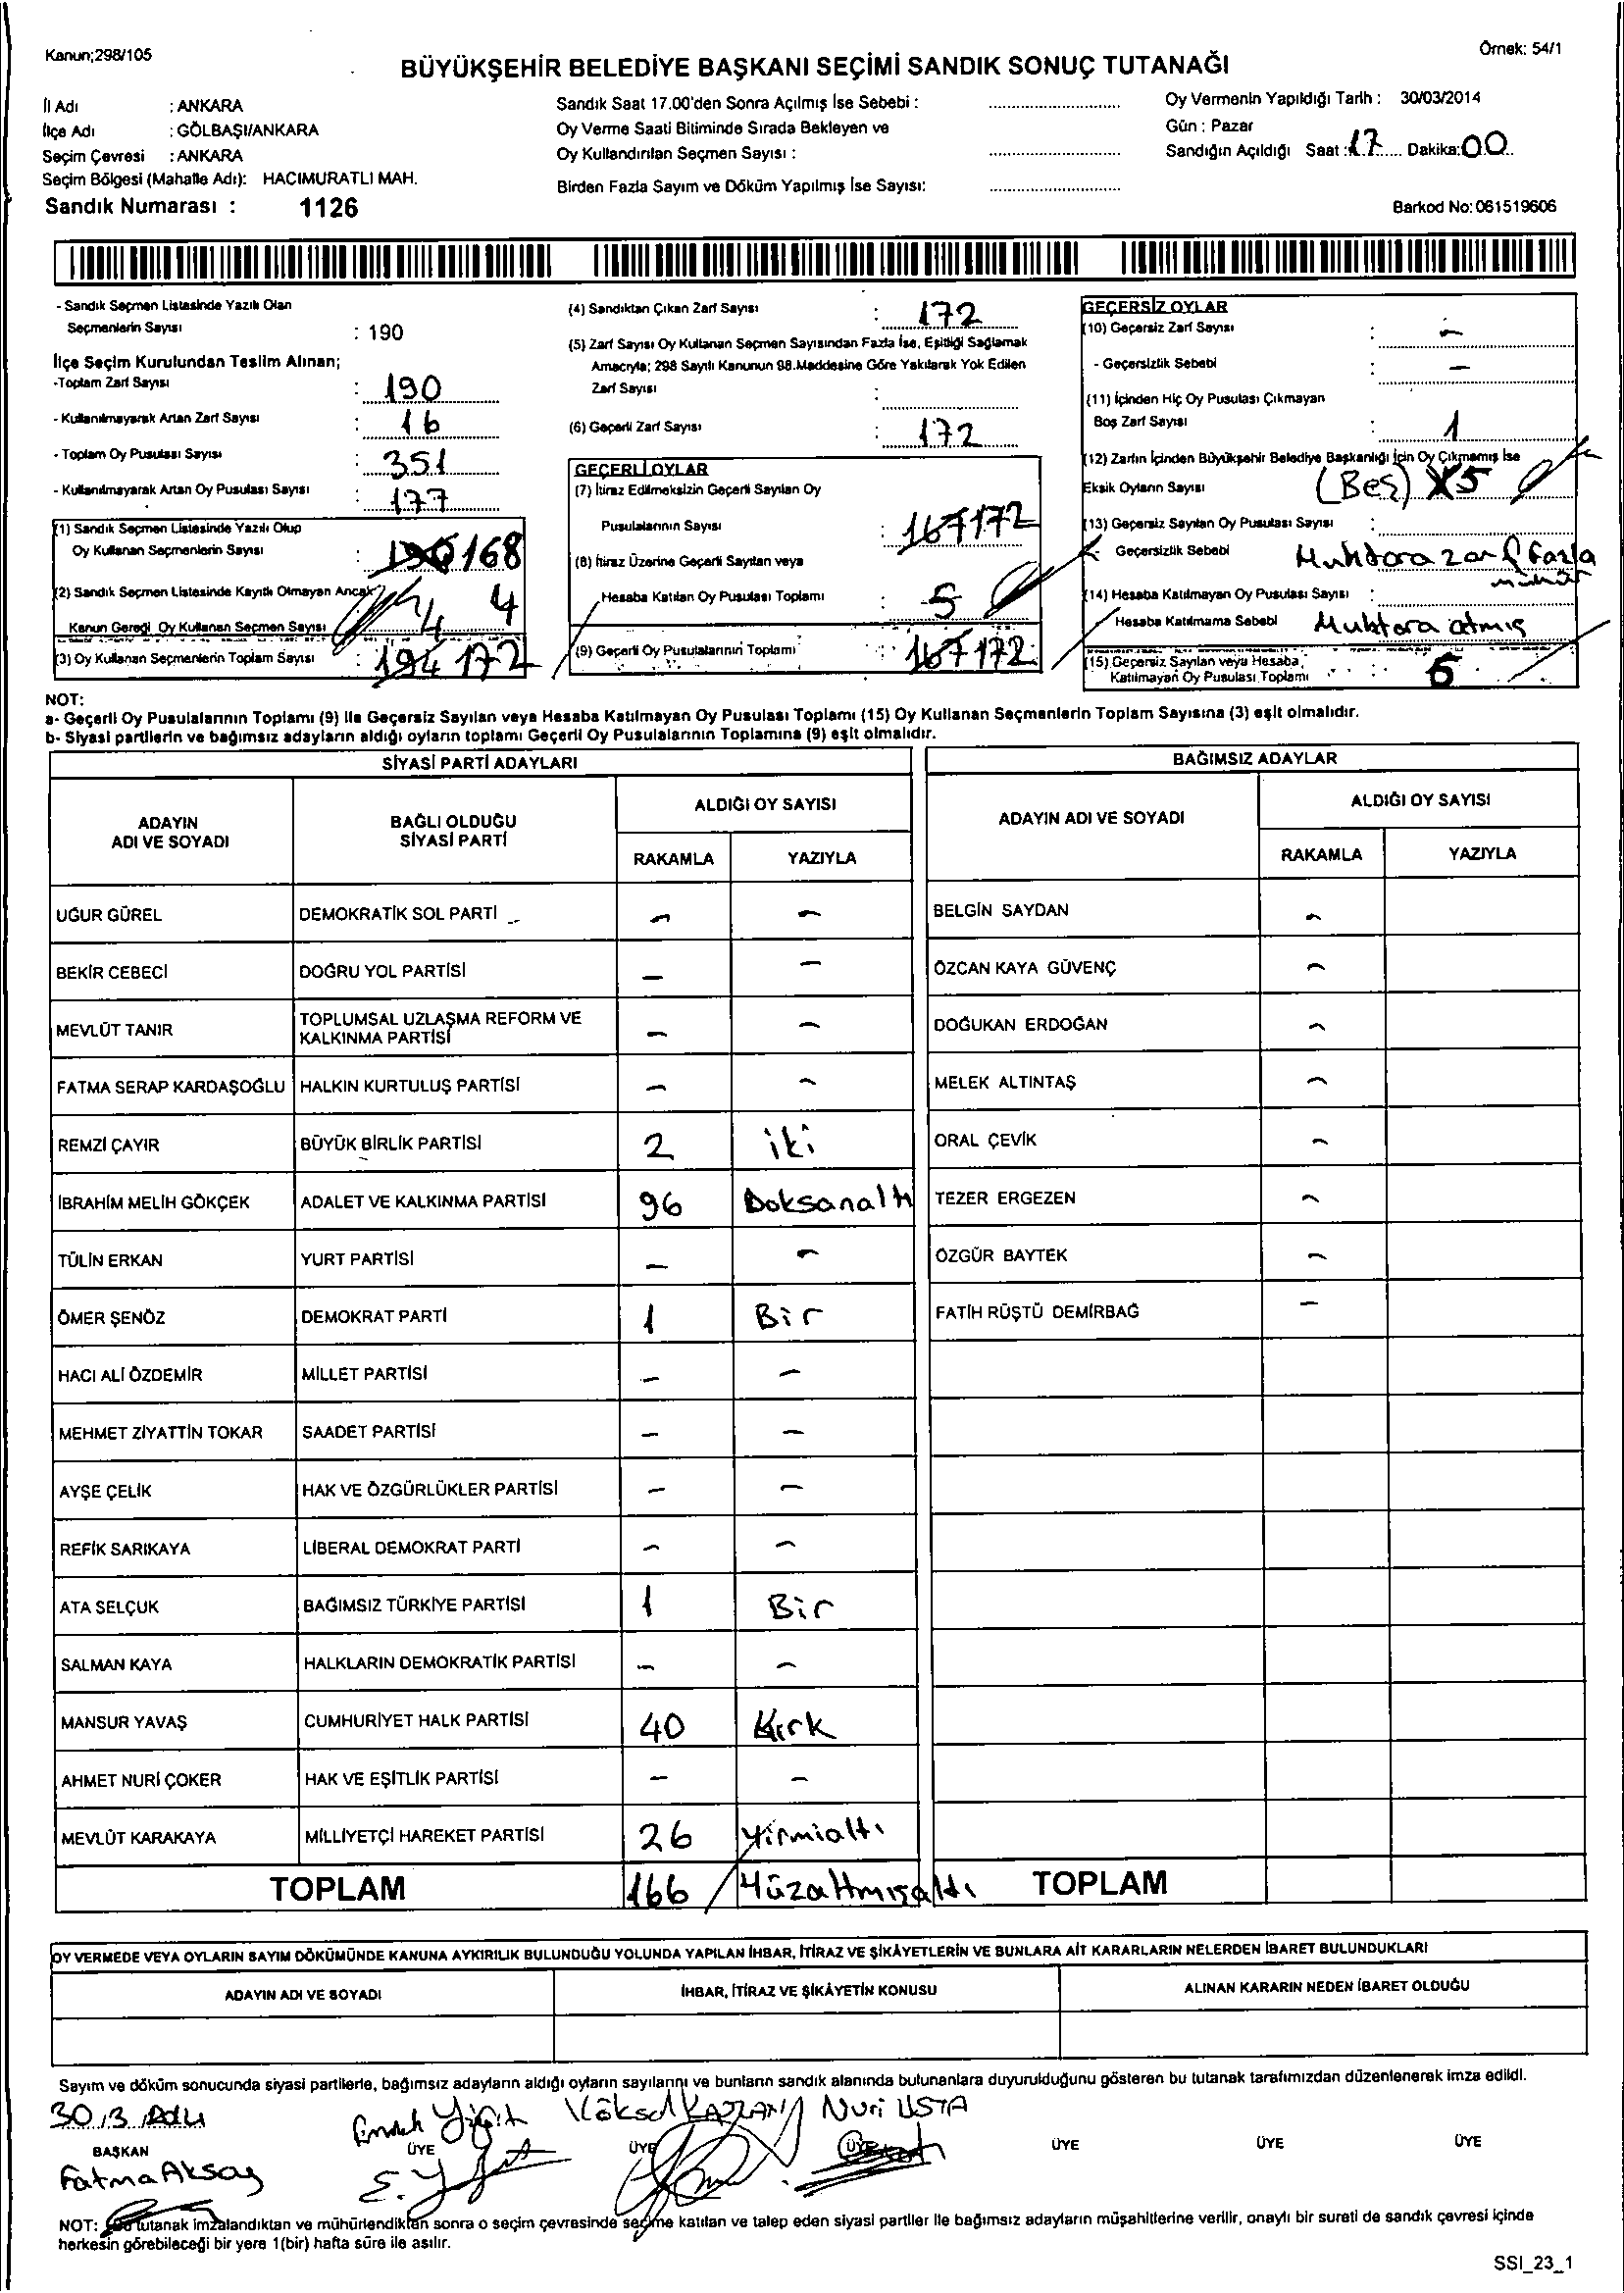 Kanun;298/105
Örnek: 54/1
BÜYÜKŞEHİR BELEDİYE BAŞKANI SEÇİMİ SANDIK SONUÇ TUTANAĞI
İl Adı : ANKARA
İlçe Adı : GÖLBAŞI/ANKARA
Seçim Çevresi : ANKARA
Seçim Bölgesi (Mahalle Adı): HACIMURATLI MAH.
Sandık Numarası : 1126
Sandık Saat 17.00'den Sonra Açılmış İse Sebebi :
Oy Verme Saati Bitiminde Sırada Bekleyen ve
Oy Kullandırılan Seçmen Sayısı :
Birden Fazla Sayım ve Döküm Yapılmış İse Sayısı:
Oy Vermenin Yapıldığı Tarih : 30/03/2014
Gün : Pazar
Sandığın Açıldığı Saat : 17 Dakika: 00
Barkod No: 061519606
- Sandık Seçmen Listesinde Yazılı Olan
Seçmenlerin Sayısı : 190
İlçe Seçim Kurulundan Teslim Alınan;
-Toplam Zarf Sayısı : 190
- Kullanılmayarak Artan Zarf Sayısı : 16
- Toplam Oy Pusulası Sayısı : 351
- Kullanılmayarak Artan Oy Pusulası Sayısı : 177
(1) Sandık Seçmen Listesinde Yazılı Olup
Oy Kullanan Seçmenlerin Sayısı : 190 168
(2) Sandık Seçmen Listesinde Kayıtlı Olmayan Ancak
Kanun Gereği Oy Kullanan Seçmen Sayısı 4 4
(3) Oy Kullanan Seçmenlerin Toplam Sayısı : 194 172
(4) Sandıktan Çıkan Zarf Sayısı : 172
(5) Zarf Sayısı Oy Kullanan Seçmen Sayısından Fazla İse, Eşitliği Sağlamak
Amacıyla; 298 Sayılı Kanunun 98.Maddesine Göre Yakılarak Yok Edilen
Zarf Sayısı :
(6) Geçerli Zarf Sayısı : 172
GEÇERLİ OYLAR
(7) İtiraz Edilmeksizin Geçerli Sayılan Oy
Pusulalarının Sayısı : 167 172
(8) İtiraz Üzerine Geçerli Sayılan veya
Hesaba Katılan Oy Pusulası Toplamı : 5
(9) Geçerli Oy Pusulalarının Toplamı : 167 172
GEÇERSİZ OYLAR
(10) Geçersiz Zarf Sayısı : -
- Geçersizlik Sebebi : -
(11) İçinden Hiç Oy Pusulası Çıkmayan
Boş Zarf Sayısı : 1
(12) Zarfın İçinden Büyükşehir Belediye Başkanlığı İçin Oy Çıkmamış İse
Eksik Oyların Sayısı (Beş) 5
(13) Geçersiz Sayılan Oy Pusulası Sayısı :
Geçersizlik Sebebi Muhtara zarf fazla
mühür
(14) Hesaba Katılmayan Oy Pusulası Sayısı :
Hesaba Katılmama Sebebi Muhtara atmış
(15) Geçersiz Sayılan veya Hesaba
Katılmayan Oy Pusulası Toplamı :
NOT:
a- Geçerli Oy Pusulalarının Toplamı (9) ile Geçersiz Sayılan veya Hesaba Katılmayan Oy Pusulası Toplamı (15) Oy Kullanan Seçmenlerin Toplam Sayısına (3) eşit olmalıdır.
b- Siyasi partilerin ve bağımsız adayların aldığı oyların toplamı Geçerli Oy Pusulalarının Toplamına (9) eşit olmalıdır.
SİYASİ PARTİ ADAYLARI
BAĞIMSIZ ADAYLAR
ADAYIN ADI VE SOYADI
BAĞLI OLDUĞU SİYASİ PARTİ
ALDIĞI OY SAYISI
RAKAMLA YAZIYLA
ADAYIN ADI VE SOYADI
ALDIĞI OY SAYISI
RAKAMLA YAZIYLA
UĞUR GÜREL DEMOKRATİK SOL PARTİ - - BELGİN SAYDAN -
BEKİR CEBECİ DOĞRU YOL PARTİSİ - - ÖZCAN KAYA GÜVENÇ -
MEVLÜT TANIR TOPLUMSAL UZLAŞMA REFORM VE KALKINMA PARTİSİ - - DOĞUKAN ERDOĞAN -
FATMA SERAP KARDAŞOĞLU HALKIN KURTULUŞ PARTİSİ - - MELEK ALTINTAŞ -
REMZİ ÇAYIR BÜYÜK BİRLİK PARTİSİ 2 iki ORAL ÇEVİK -
İBRAHİM MELİH GÖKÇEK ADALET VE KALKINMA PARTİSİ 96 Doksanaltı TEZER ERGEZEN -
TÜLİN ERKAN YURT PARTİSİ - - ÖZGÜR BAYTEK -
ÖMER ŞENÖZ DEMOKRAT PARTİ 1 Bir FATİH RÜŞTÜ DEMİRBAĞ -
HACI ALİ ÖZDEMİR MİLLET PARTİSİ - -
MEHMET ZİYATTİN TOKAR SAADET PARTİSİ - -
AYŞE ÇELİK HAK VE ÖZGÜRLÜKLER PARTİSİ - -
REFİK SARIKAYA LİBERAL DEMOKRAT PARTİ - -
ATA SELÇUK BAĞIMSIZ TÜRKİYE PARTİSİ 1 Bir
SALMAN KAYA HALKLARIN DEMOKRATİK PARTİSİ - -
MANSUR YAVAŞ CUMHURİYET HALK PARTİSİ 40 Kırk
AHMET NURİ ÇOKER HAK VE EŞİTLİK PARTİSİ - -
MEVLÜT KARAKAYA MİLLİYETÇİ HAREKET PARTİSİ 26 Yirmialtı
TOPLAM 166 Yüzaltmışaltı TOPLAM
OY VERMEDE VEYA OYLARIN SAYIM DÖKÜMÜNDE KANUNA AYKIRILIK BULUNDUĞU YOLUNDA YAPILAN İHBAR, İTİRAZ VE ŞİKÂYETLERİN VE BUNLARA AİT KARARLARIN NELERDEN İBARET BULUNDUKLARI
ADAYIN ADI VE SOYADI İHBAR, İTİRAZ VE ŞİKÂYETİN KONUSU ALINAN KARARIN NEDEN İBARET OLDUĞU
Sayım ve döküm sonucunda siyasi partilerle, bağımsız adayların aldığı oyların sayılarını ve bunların sandık alanında bulunanlara duyurulduğunu gösteren bu tutanak tarafımızdan düzenlenerek imza edildi.
30/3/2014 Yiğit Köksal Nuri USTA
BAŞKAN ÜYE ÜYE ÜYE ÜYE ÜYE ÜYE
Fatma Aksoy
NOT: Bu tutanak imzalandıktan ve mühürlendikten sonra o seçim çevresinde seçime katılan ve talep eden siyasi partiler ile bağımsız adayların müşahitlerine verilir, onaylı bir sureti de sandık çevresi içinde
herkesin görebileceği bir yere 1(bir) hafta süre ile asılır.
SSI_23_1